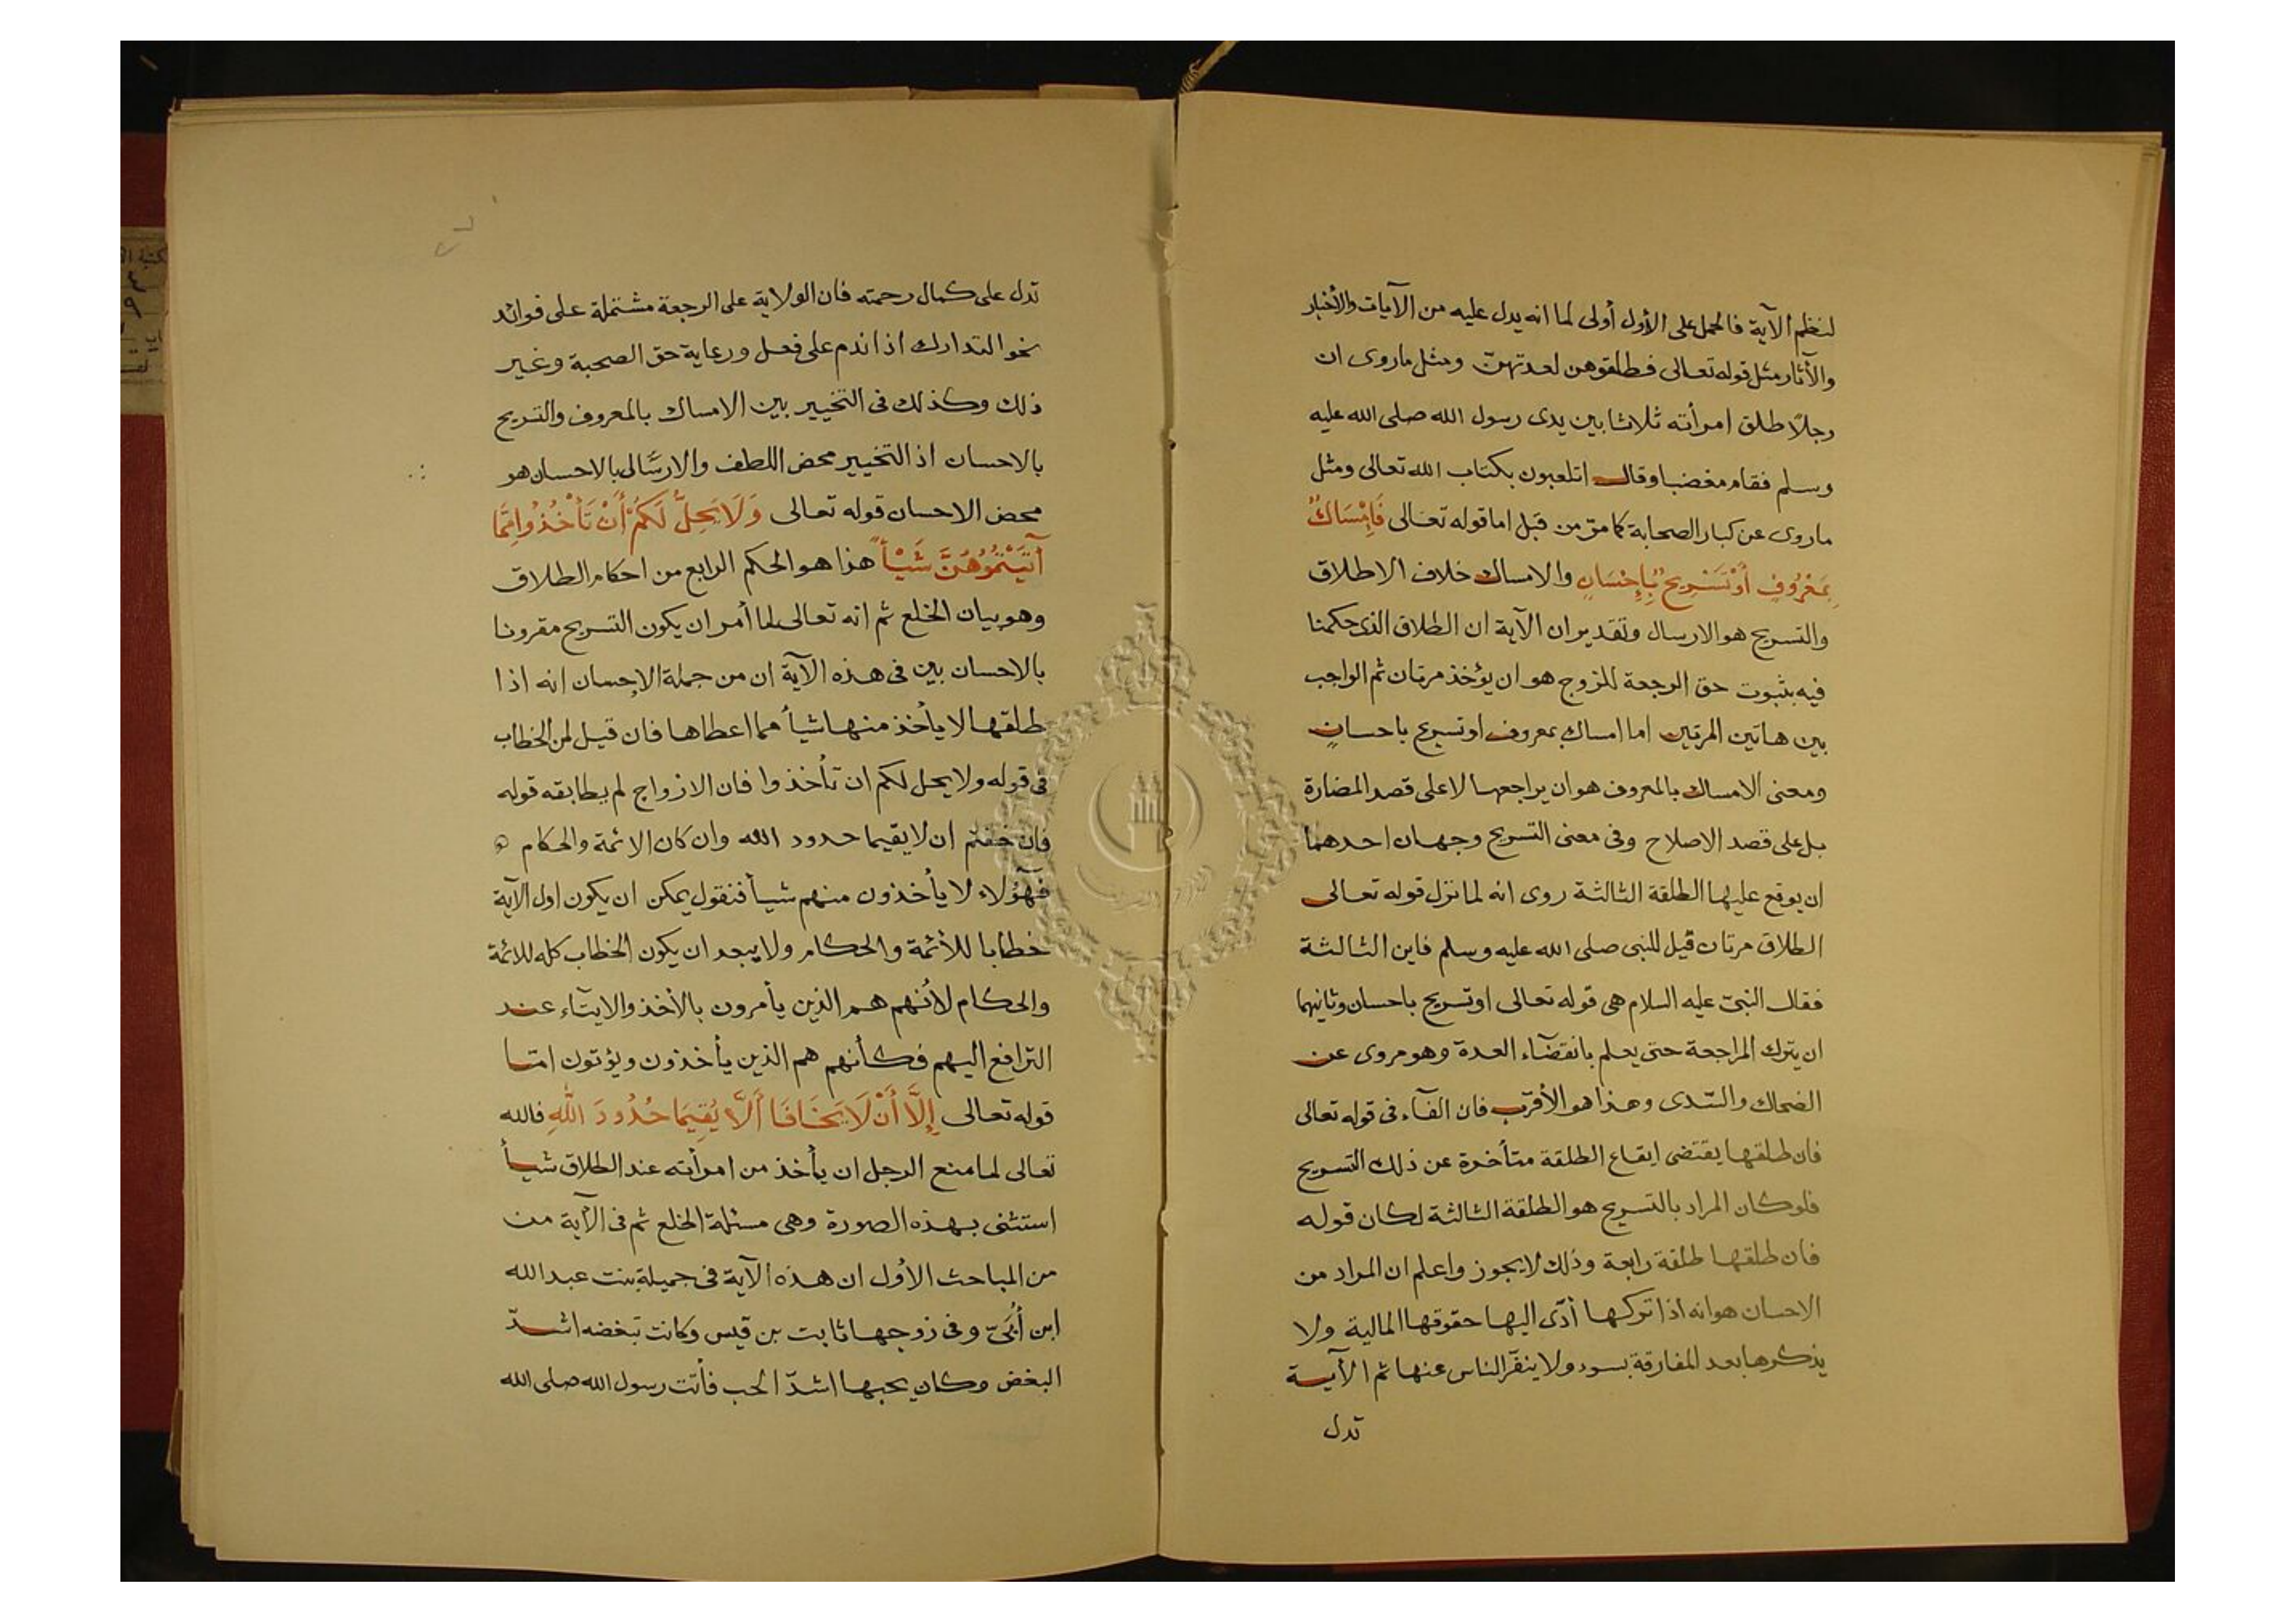 لنظم الآية فالحمل على الأول أولى لما انه يدل عليه من الآيات والأخبار
والآثار مثل قوله تعالى فطلقوهن لعدتهنّ ومثل ما روى ان
رجلًا طلق امرأته ثلاثا بين يدى رسول الله صلى الله عليه
وسلم فقام مغضبا وقال اتلعبون بكتاب الله تعالى ومثل
ما روى عن كبار الصحابة كما مرّ من قبل اما قوله تعالى فَإِمْسَاكٌ
بِمَعْرُوفٍ أَوْ تَسْرِيحٌ بِإِحْسَانٍ والامساك خلاف الاطلاق
والتسريح هو الارسال وتقدير ان الآية ان الطلاق الذى حكمنا
فيه بثبوت حق الرجعة للزوج هو ان يؤخذ مرتان ثم الواجب
بين هاتين المرتين اما امساك بمعروف او تسريح باحسانٍ
ومعنى الامساك بالمعروف هو ان يراجعها لا على قصد المضارة
بل على قصد الاصلاح وفى معنى التسريح وجهان احدهما
ان يوقع عليها الطلقة الثالثة روى انه لما نزل قوله تعالى
الطلاق مرتان قيل للنبى صلى الله عليه وسلم فاين الثالثة
فقال النبىّ عليه السلام هى قوله تعالى او تسريح باحسان وثانيهما
ان يترك المراجعة حتى يعلم بانقضآء العدة وهو مروى عن
الضحاك والسّدى وهذا هو الأقرب فان الفآء فى قوله تعالى
فان طلقها يقتضى ايقاع الطلقة متأخرة عن ذلك التسريح
فلو كان المراد بالتسريح هو الطلقة الثالثة لكان قوله
فان طلقها طلقة رابعة وذلك لا يجوز واعلم ان المراد من
الاحسان هو انه اذا تركها أدّى اليها حقوقها المالية ولا
يذكرها بعد المفارقة بسوء ولا ينفّر الناس عنها ثم الآية
تدل
تدل على كمال رحمته فان الولاية على الرجعة مشتملة على فوائد
نحو التدارك اذا ندم على فعل ورعاية حق الصحبة وغير
ذلك وكذلك فى التخيير بين الامساك بالمعروف والتسريح
بالاحسان اذ التخيير محض اللطف والارسال بالاحسان هو
محض الاحسان قوله تعالى وَلَا يَحِلُّ لَكُمْ أَنْ تَأْخُذُوا مِمَّا
آتَيْتُمُوهُنَّ شَيْأً هذا هو الحكم الرابع من احكام الطلاق
وهو بيان الخلع ثم انه تعالى لما أمر ان يكون التسريح مقرونا
بالاحسان بين فى هذه الآية ان من جملة الإحسان انه اذا
طلقها لا يأخذ منها شيأ مما اعطاها فان قيل لمن الخطاب
فى قوله ولا يحل لكم ان تأخذوا فان الازواج لم يطابقه قوله
فان خفتم ان لا يقيما حدود الله وان كان الائمة والحكام
فهٓؤلاء لا يأخذون منهم شيأ فنقول يمكن ان يكون اول الآية
خطابا للأئمة والحكام ولا يبعد ان يكون الخطاب كله للائمة
والحكام لأنهم هم الذين يأمرون بالأخذ والايتآء عند
الترافع اليهم فكأنهم هم الذين يأخذون ويؤتون امّا
قوله تعالى إِلَّا أَنْ لَا يَخَافَا أَلَّا يُقِيمَا حُدُودَ اللهِ فالله
تعالى لما منع الرجل ان يأخذ من امرأته عند الطلاق شيأ
استثنى بهذه الصورة وهى مسئلة الخلع ثم فى الآية من
من المباحث الأول ان هذه الآية فى جميلة بنت عبد الله
ابن أُبَىّ وفى زوجها ثابت بن قيس وكانت تبغضه اشدّ
البغض وكان يحبها اشدّ الحب فأتت رسول الله صلى الله